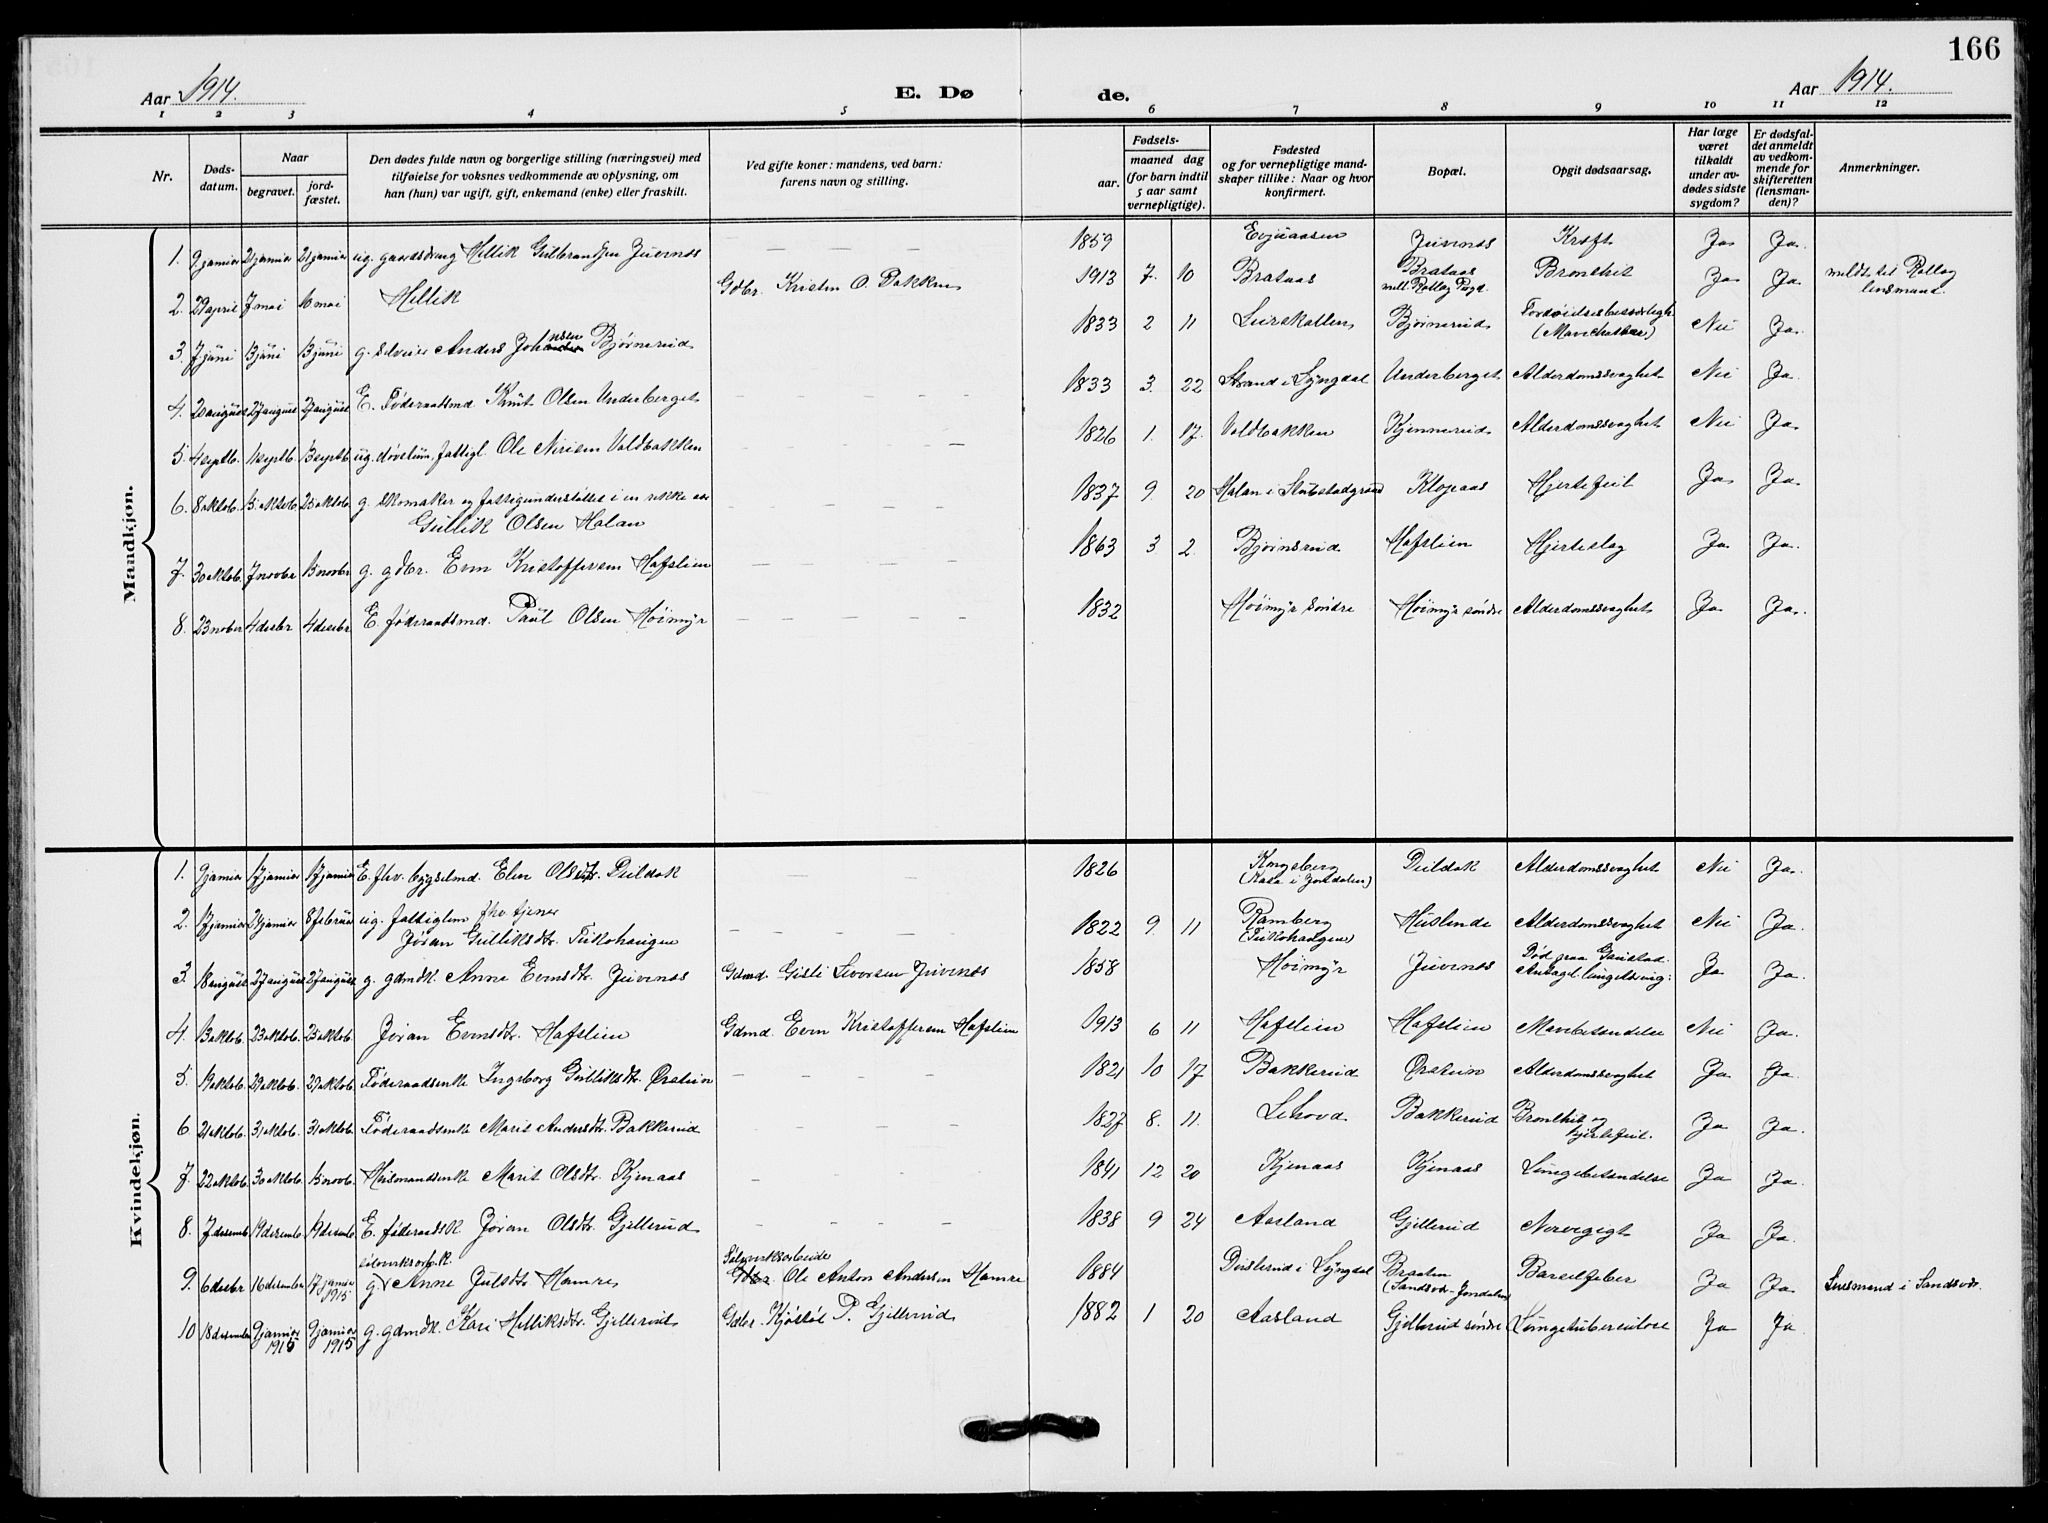 166
Aar 1914.
E. Dø
de.
Aar 1914.
1 2 3 4 5 6 7 8 9 10 11 12
Nr.
Døds-
datum.
Naar
begravet.
jord-
fæstet.
Den dødes fulde navn og borgerlige stilling (næringsvei) med
tilføielse for voksnes vedkommende av oplysning, om
han (hun) var ugift, gift, enkemand (enke) eller fraskilt.
Ved gifte koner: mandens, ved barn:
farens navn og stilling.
Fødsels-
aar.
maaned dag
(for barn indtil
5 aar samt
vernepligtige).
Fødested
og for vernepligtige mand-
skaper tillike: Naar og hvor
konfirmert.
Bopæl.
Opgit dødsaarsag.
Har læge
været
tilkaldt
under av-
dødes sidste
sygdom?
Er dødsfal-
det anmeldt
av vedkom-
mende for
skifteretten
(lensman-
den)?
Anmerkninger.
Mandkjøn.
1. 9 januar 21 januar 21 januar ug. gaardsdreng Hellik Gulbrandsen Juvenæs — — — — 1859 Evjuaasen Juvenæs Kræft Ja Ja.
2. 29 april 7 mai 10 mai Hellik Gdbr. Kristen O. Bakken 1913 7. 10 Brataas Brataas Bronkit Ja Ja. meldt til Rollag
lensmand.
3. 7 juni 13 juni 13 juni g. selveier Anders Johansen Bjørnerud 1833 2 11 Leirskallen Bjørnerud Fordøielsesbesværligh.
(Mavekatar) Nei Ja.
4. 20 august 27 august 27 august E. Føderaadsmd. Knut Olsen Underberget — — — — 1833 3. 22 Strand i Lyngdal Underberget Alderdomssvaghet Nei Ja.
5. 4 septb. 11 septb. 13 septb. ug. døvstum, fattigl. Ole Nirisen Voldbakken — — — — 1826 1. 17. Voldbakken Kjennerud Alderdomssvaghet Nei Ja.
6. 8 oktob. 15. oktob. 25 oktob. g. skomaker og fattigunderstøttet i en række aar
Gullik Olsen Halan — — — — 1837 9 20 Halan i Klopaas Hjertefeil Ja Ja.
7. 30 oktob. 7 novbr 15 novbr g. gdbr. Even Kristoffersen Hafslien — — — — 1863 3 2. Bjørnsrud Hafslien Hjerteslag Ja Ja.
8. 23 nober 4 desbr 4 desbr E. føderaadsmd. Paul Olsen Høimyr — — — — 1832 Høimyr søndre Høimyr søndre Alderdomssvaghet Ja Ja.
Kvindekjøn.
1. 9 januar 17 januar 17 januar E. fhv. bygselmd. Elen Olsdtr. Deildok — — — — 1826 Kongsberg
(Kaasa i Jondalen) Deildok Alderdomssvaghet Nei Ja.
2. 17 januar 24 januar 8 februar ug. fattiglem fhv. tjener
Jøran Gulliksdtr. Tukohaugen — — — — 1822 9 11 Ramberg
(Tukohaugen) Huslende Alderdomssvaghet Nei Ja.
3. 18 august 27 august 27 august g. gdmdk. Anne Evensdtr. Juvenæs Gdmd. Gisli Sevorsen Juvenæs 1858 Høimyr Juvenæs Død paa Gaustad.
Antagel. Ja Ja.
4. 13 oktob. 23 oktob. 25 oktob. Jøran Evensdtr. Hafslien Gdmd. Even Kristoffersen Hafslien 1913 6 11 Hafslien Hafslien Mavebetændelse Nei Ja.
5. 19 oktob. 29 oktob. 29 oktob. Føderaadsenke Ingeborg Gulliksdtr. Ørstein — — — — 1821 10 17 Bakkerud Ørstein Alderdomssvaghet Ja Ja.
6 21 oktob. 31 oktob. 31 oktob. Føderaadsenke Marit Andersdtr. Bakkerud — — — — 1827 8. 11. Lehovd Bakkerud Bronkit og
hjertefeil. Ja Ja.
7. 22 oktob. 30 oktob. 15 novb. Husmandsenke Marit Olsdtr. Kjenaas — — — — 1841 12 20 Kjenaas Kjenaas Lungebetændelse Ja Ja.
8. 7 desemb. 19 desemb. 19 desemb. E. føderaadsk. Jøran Olsdtr. Gjellerud — — — — 1838 9 24 Aasland Gjellerud Nervegigt Ja Ja.
9. 6 desbr 16 desember 17 januar
1915 sølvverksarb.k.
g. Anne Julsdtr. Hamre Sølvverksarbeider
Ole Anton Andersen Hamre 1884 Disterud i Lyngdal Braaten
(Sandsvær-Jondalen) Barselfeber Ja Ja. Lensmand i Sandsvær.
10 18 desember 9 januar
1915 9 januar
1915 g. gdmdk. Kari Helliksdtr. Gjellerud Gdbr. Kjøstol P. Gjellerud 1882 1 20 Aasland Gjellerud søndre Lungetuberkulose Ja Ja